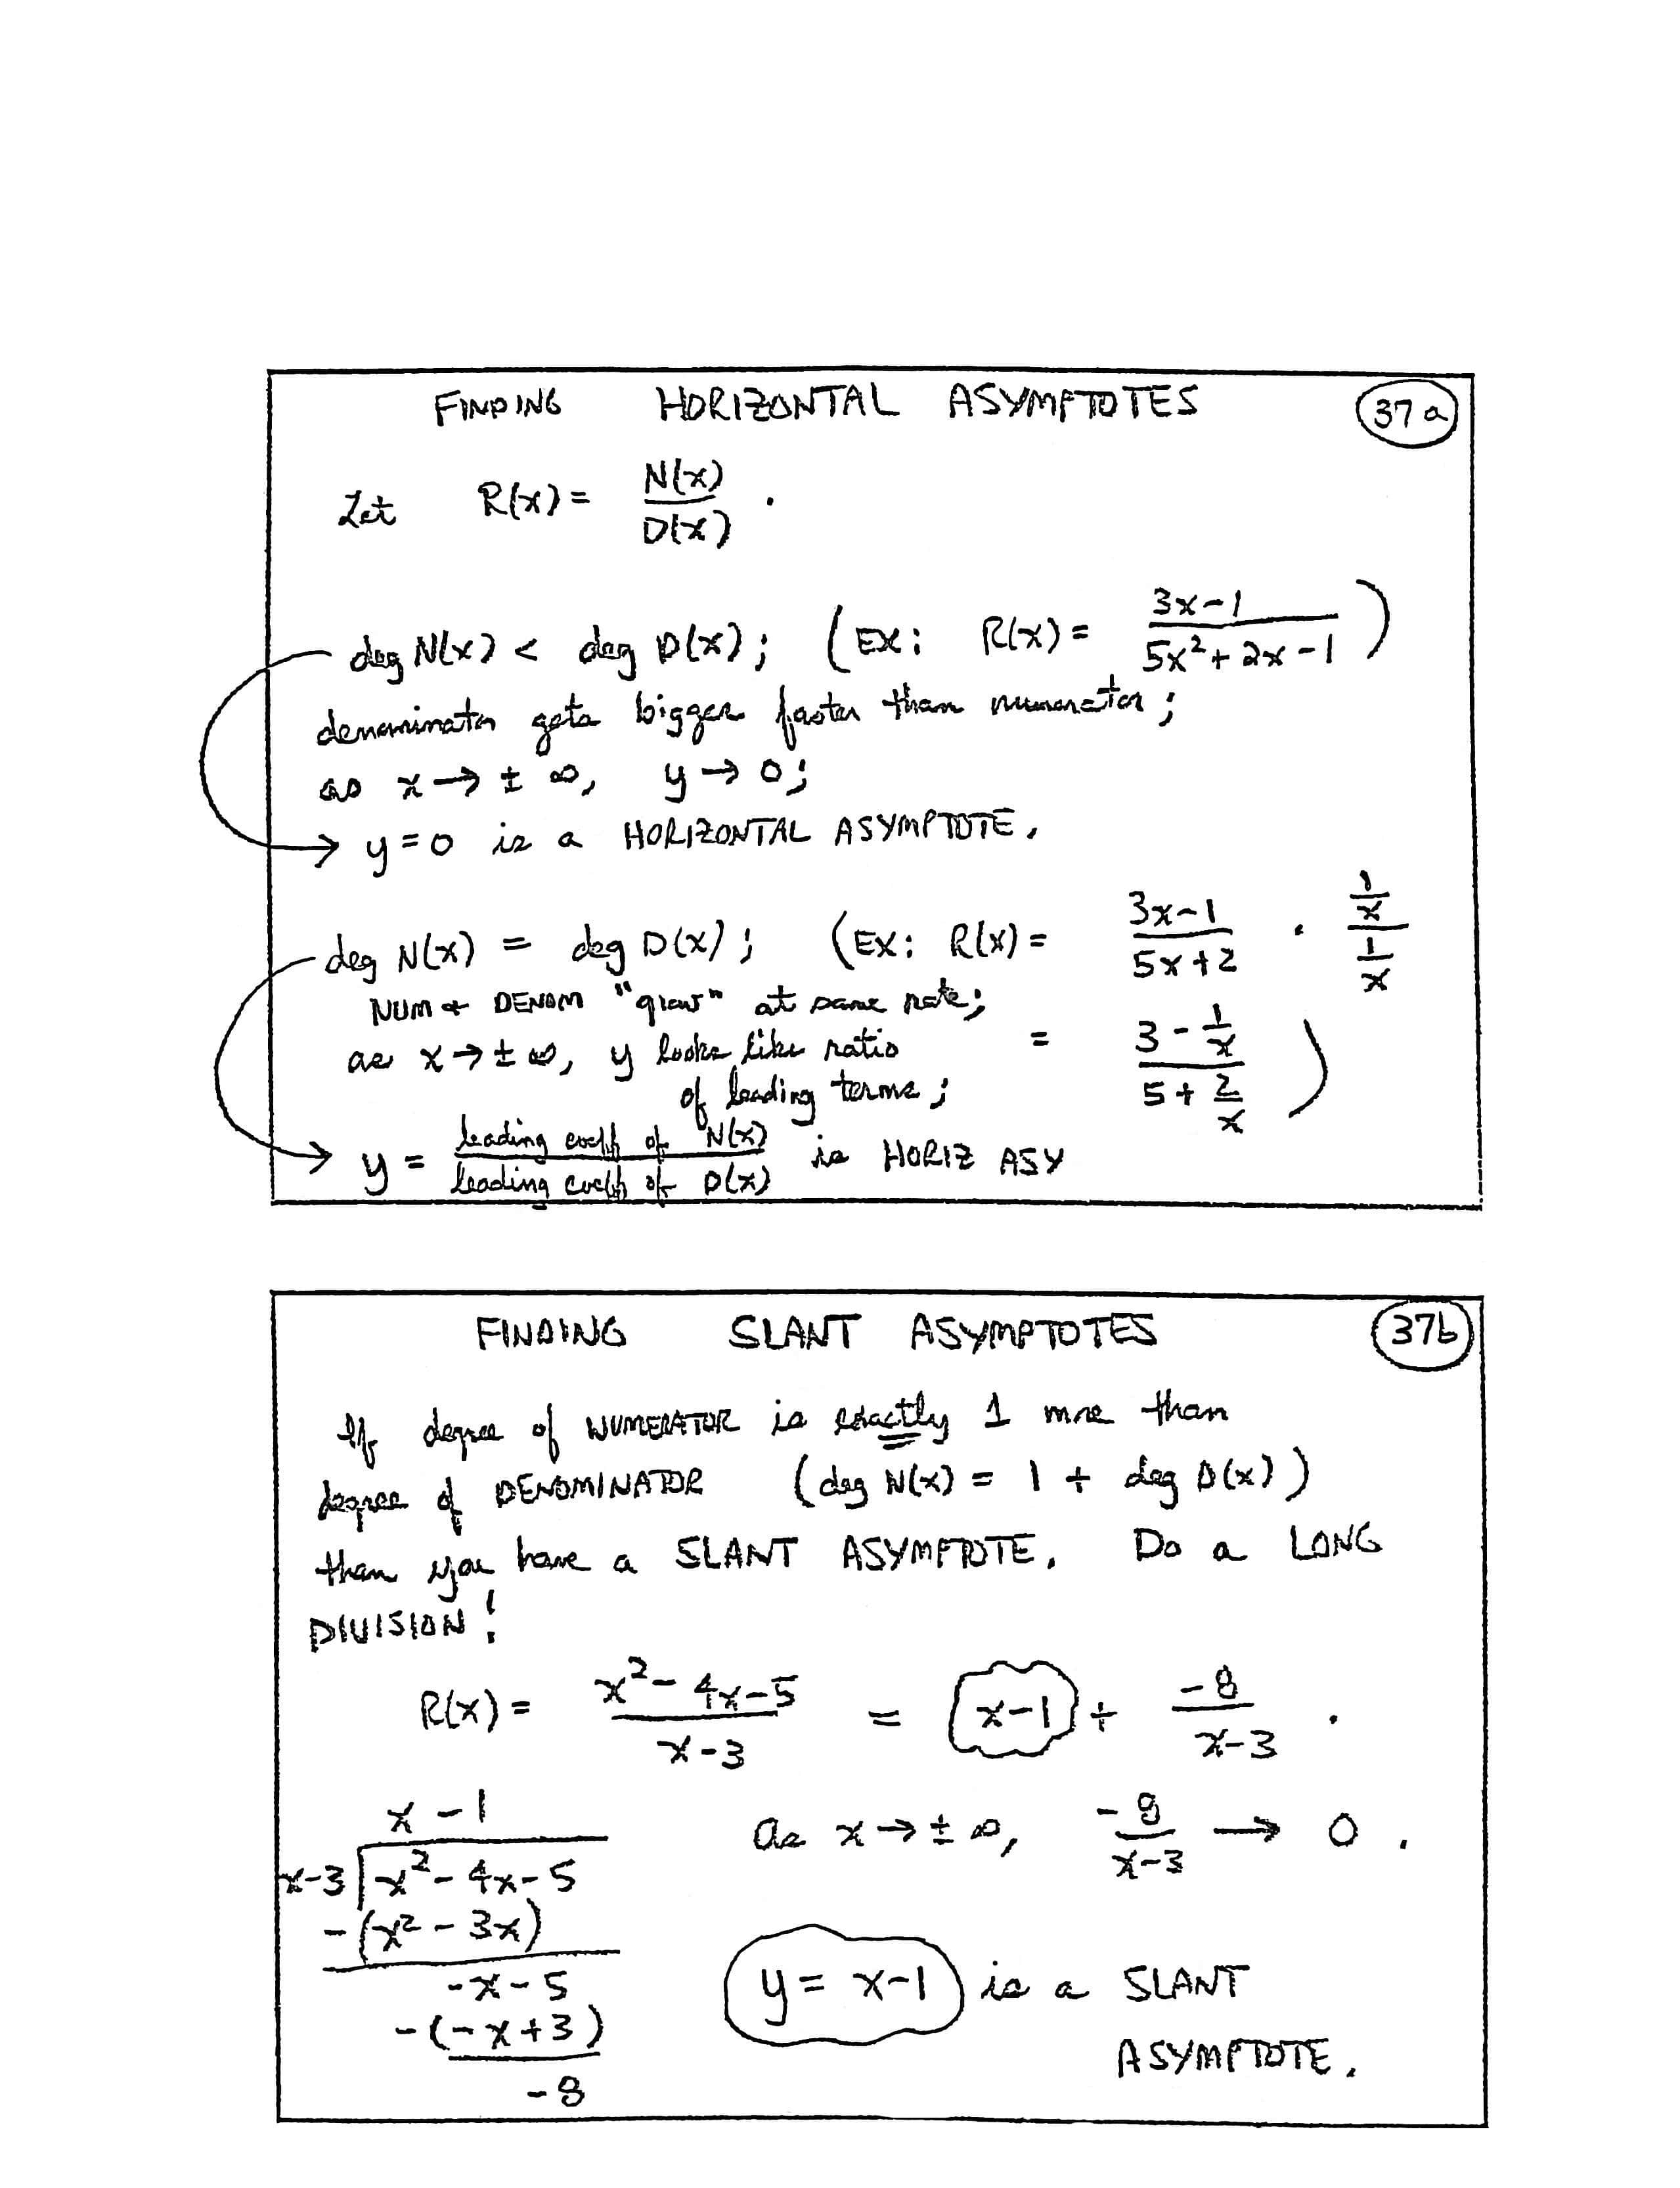 FINDING HORIZONTAL ASYMPTOTES 37a
Let R(x) = N(x)/D(x) .
deg N(x) < deg D(x); (EX: R(x) = (3x-1)/(5x²+2x-1))
denominator gets bigger faster than numerator;
as x → ± ∞, y → 0;
→ y = 0 is a HORIZONTAL ASYMPTOTE.
deg N(x) = deg D(x); (EX: R(x) = (3x-1)/(5x+2) · (1/x)/(1/x)
NUM & DENOM "grow" at same rate;
as x → ± ∞, y looks like ratio = (3 - 1/x)/(5 + 2/x) )
of leading terms;
→ y = leading coeff of N(x) / leading coeff of D(x) is HORIZ ASY
FINDING SLANT ASYMPTOTES 37b
If degree of NUMERATOR is exactly 1 more than
degree of DENOMINATOR (deg N(x) = 1 + deg D(x))
then you have a SLANT ASYMPTOTE. Do a LONG
DIVISION!
R(x) = (x²-4x-5)/(x-3) = x-1 + -8/(x-3) .
x - 1
x-3 x² - 4x - 5
-(x² - 3x)
-x - 5
-(-x+3)
-8
As x → ± ∞, -8/(x-3) → 0 .
y = x-1 is a SLANT
ASYMPTOTE.